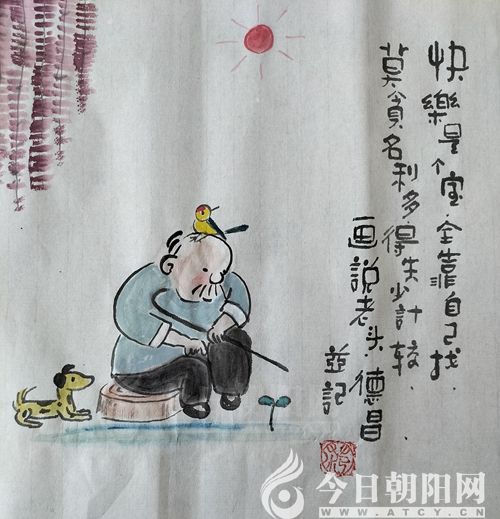 快樂是个宝全靠自己找
莫貪名利多得失少計较
画説老头德昌
並記
今日朝阳网
WWW.ATCY.CN